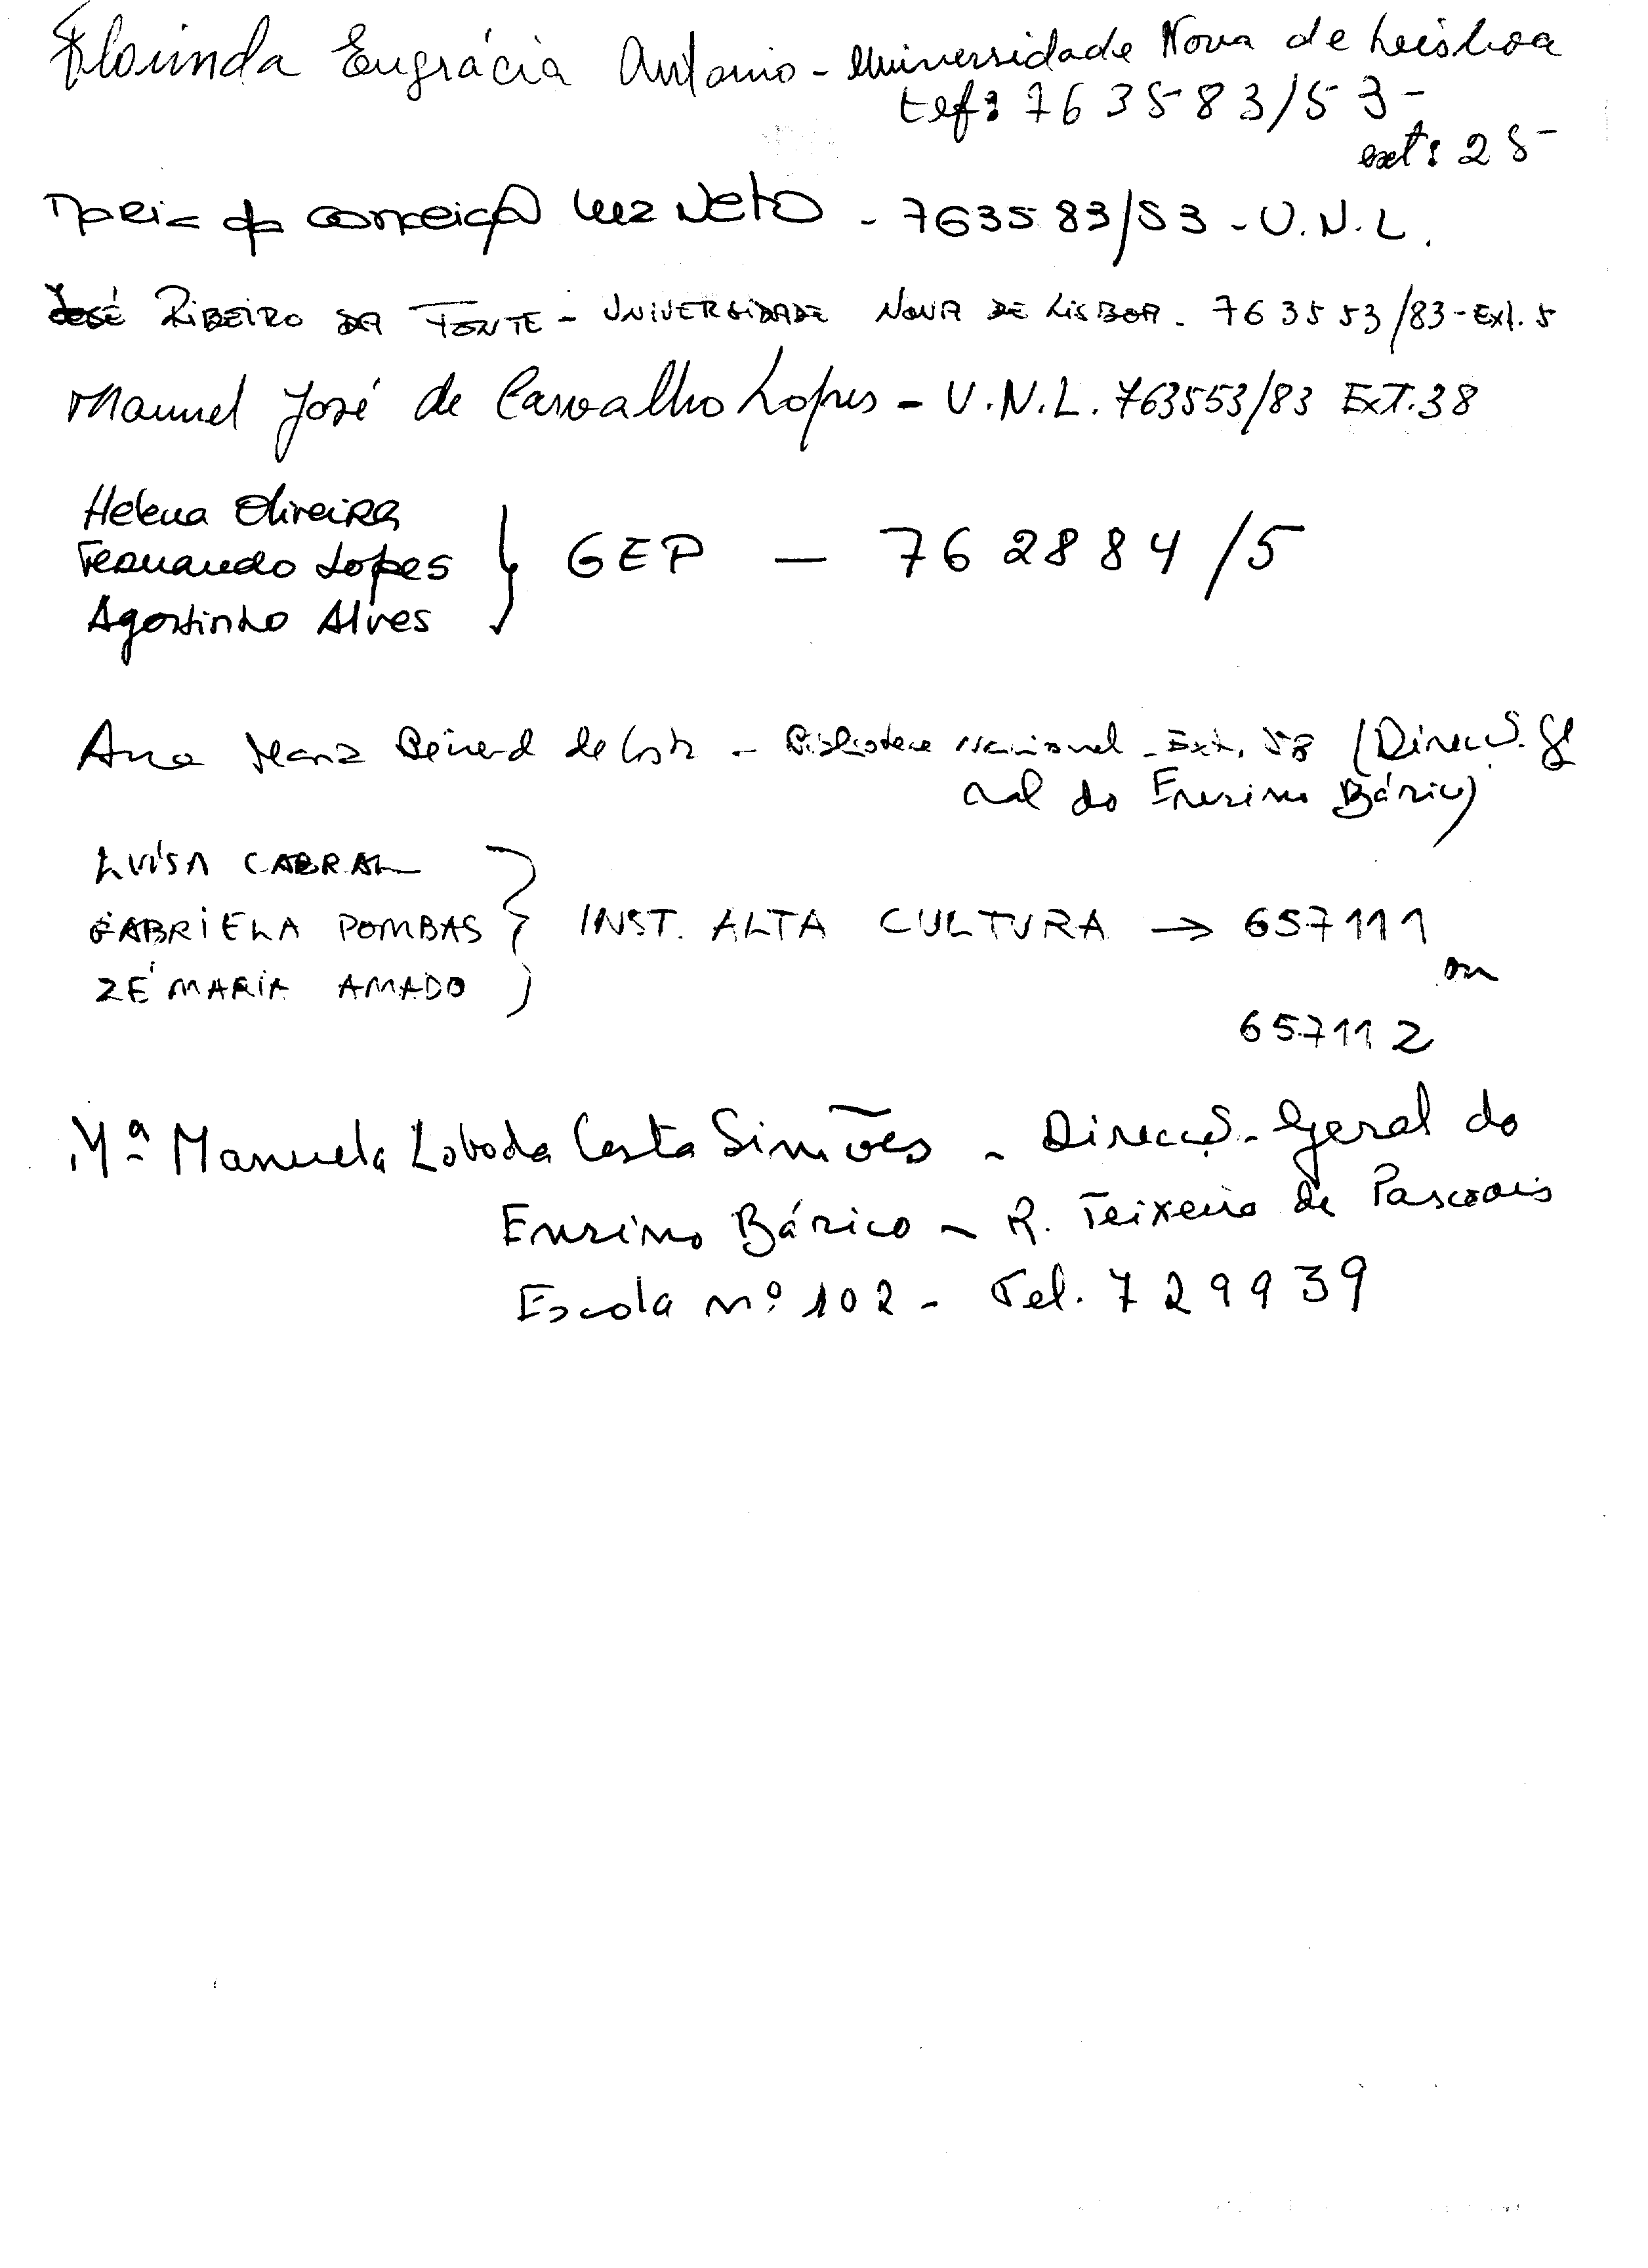 Florinda Engrácia António - Universidade Nova de Lisboa
telf: 763583/53 -
ext: 25
Maria da Conceição Luz Neto - 763583/53 - U.N.L.
José RIBEIRO DA FONTE - UNIVERSIDADE NOVA DE LISBOA. 763553/83 - Ext. 5
Manuel José de Carvalho Lopes - U.N.L. 763553/83 EXT. 38
Helena Oliveira
Fernando Lopes } GEP - 762884/5
Agostinho Alves
Ana Maria Bénard da Costa - Biblioteca Nacional - Ext. 58 (Direcç. Ge
ral do Ensino Básico)
LUÍSA CABRAL
GABRIELA POMBAS } INST. ALTA CULTURA → 657111
ZÉ MARIA AMADO
ou
657112
Mª Manuela Lobo da Costa Simões - Direcç. Geral do
Ensino Básico - R. Teixeira de Pascoais
Escola nº 102 - Tel. 729939